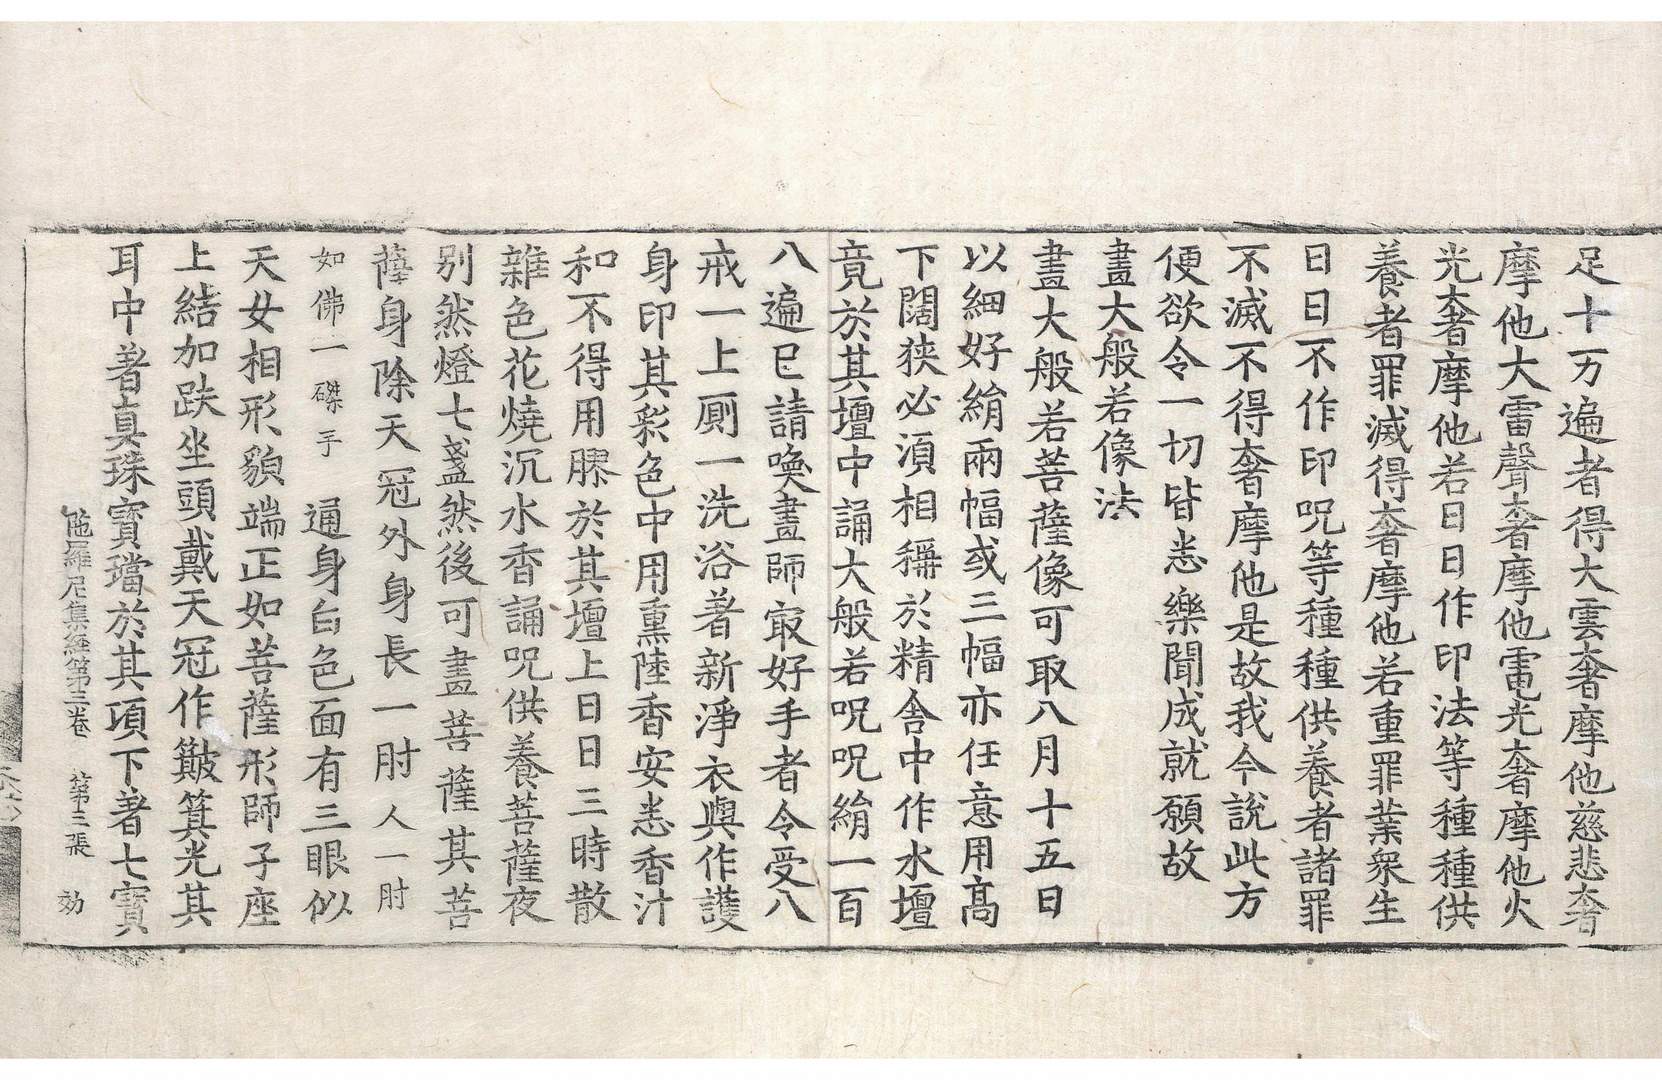 足十万遍者得大雲奢摩他慈悲奢
摩他大雷聲奢摩他電光奢摩他火
光奢摩他若日日作印法等種種供
養者罪滅得奢摩他若重罪業衆生
日日不作印呪等種種供養者諸罪
不滅不得奢摩他是故我今說此方
便欲令一切皆悉樂聞成就願故
畫大般若像法
畫大般若菩薩像可取八月十五日
以細好絹兩幅或三幅亦任意用高
下闊狹必須相稱於精舍中作水壇
竟於其壇中誦大般若呪呪絹一百
八遍已請喚畫師㝡好手者令受八
戒一上厠一洗浴著新淨衣與作護
身印其彩色中用熏陸香安悉香汁
和不得用膠於其壇上日日三時散
雜色花燒沉水香誦呪供養菩薩夜
別然燈七盞然後可畫菩薩其菩
薩身除天冠外身長一肘人一肘
如佛一磔手通身白色面有三眼似
天女相形貌端正如菩薩形師子座
上結加趺坐頭戴天冠作簸箕光其
耳中著真珠寶璫於其項下著七寶
陁羅尼集經第三卷 第三張 効